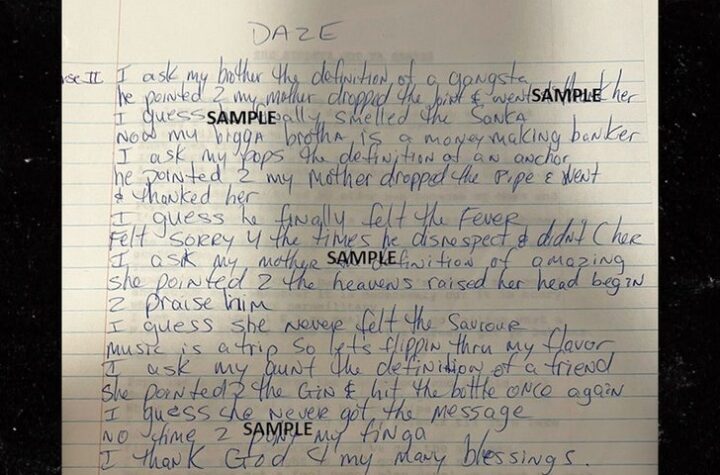 DAZE
se II I ask my brother the definition of a gangsta
he pointed 2 my mother dropped the joint & went SAMPLE her
I guess SAMPLE ally smelled the Sanka
Now my bigga brotha is a money making banker
I ask my pops the definition of an anchor
he pointed 2 my Mother dropped the Pipe & Went
& thanked her
I guess he finally felt the Fever
Felt Sorry 4 the times he disrespect & didn't C her
I ask my mother SAMPLE definition of amazing
she pointed 2 the heavens raised her head begin
2 praise him
I guess she never felt the Saviour
music is a trip So let's flippin thru my flavor
I ask my aunt the definition of a friend
she pointed 2 the Gin & hit the bottle once again
I guess she never got the message
NO time 2 SAMPLE my finga
I thank God 4 my many blessings.